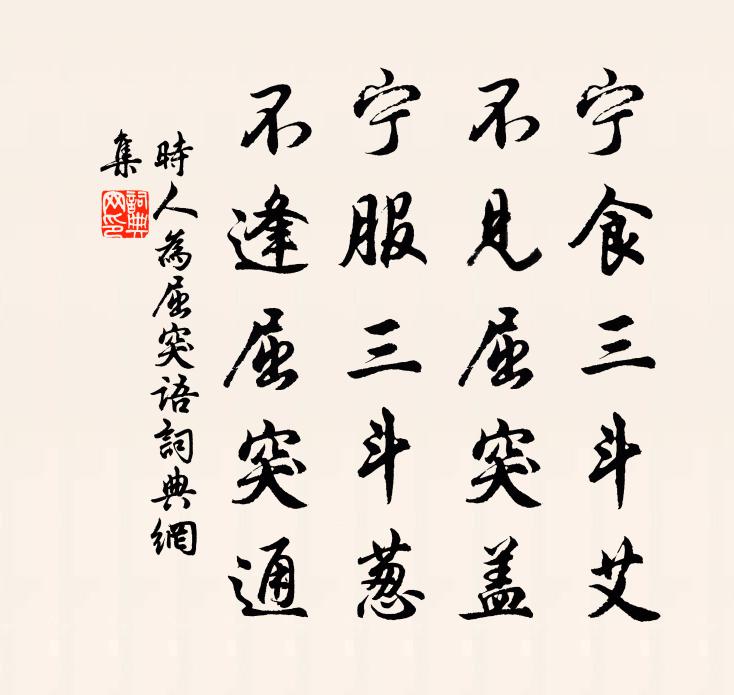 宁食三斗艾
不见屈突盖
宁服三斗葱
不逢屈突通
時人為屈突语詞典網
集
詞典網印